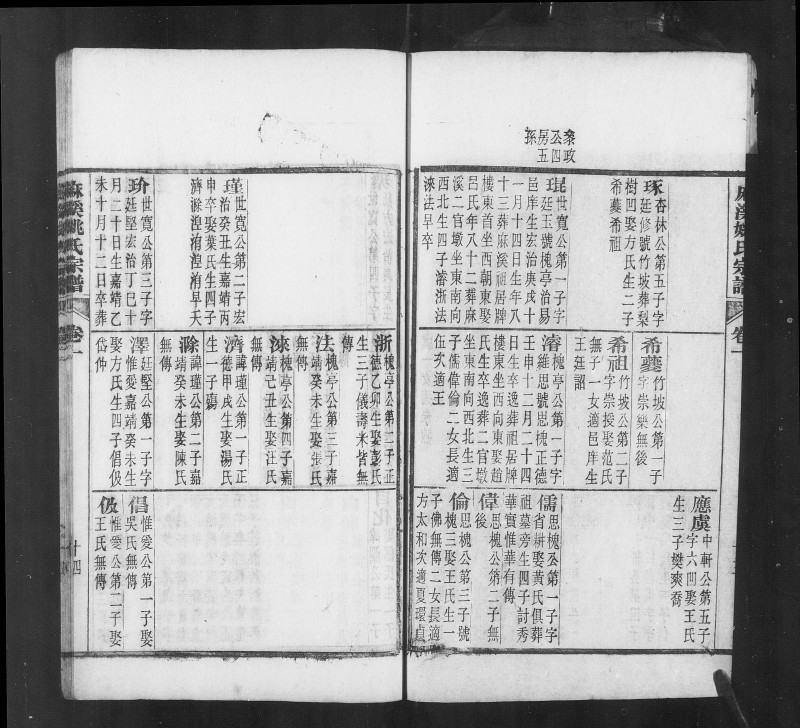 槃政
公四
房五
孫
琢杏林公第五子字
廷修號竹坡葬梨
樹凹娶方氏生二子
希夔希祖
琨世寬公第一子字
廷玉號槐亭治易
邑庠生宏治庚戌十
一月十四日生年八
十三葬麻溪祖居牌
樓東首坐西朝東娶
呂氏年八十二葬麻
溪二官墩坐東南向
西北生四子濬浙法
淶法早卒
希夔竹坡公第一子
字崇欒無後
希祖竹坡公第二子
字崇授娶范氏
無子一女適邑庠生
王廷詔
濬槐亭公第一子字
維思號思槐正德
壬申十二月二十四
日生卒逸葬祖居牌
樓東坐西向東娶趙
氏生卒逸葬二官墩
坐東南向西北生三
子儒偉倫二女長適
伍次適王
應虞中軒公第五子
字六凹娶王氏
生三子樊爽喬
儒思槐公第一子字
省耕娶黃氏俱葬
祖墓旁生四子討秀
華實惟華有傳
偉思槐公第二子無
後
倫思槐公第三子號
槐三娶王氏生一
子佛無傳二女長適
方太和次適夏環貞
麻溪姚氏宗譜
卷一
十四
瑾世寬公第二子宏
治癸丑生嘉靖丙
申卒娶葉氏生四子
濟滁湟洧湟洧早夭
玠世寬公第三子字
廷堅宏治丁巳十
月二十日生嘉靖乙
未十月十二日卒葬
浙槐亭公第二子正
德乙卯生娶彭氏
生三子儀壽米皆無
傳
法槐亭公第三子嘉
靖癸未生娶張氏
無傳
淶槐亭公第四子嘉
靖己丑生娶汪氏
無傳
濟諱瑾公第一子正
德甲戌生娶湯氏
生一子瑒
滁諱瑾公第二子嘉
靖癸未生娶陳氏
無傳
澤廷堅公第一子字
惟愛嘉靖癸未生
娶方氏生四子倡伋
岱仲
倡惟愛公第一子娶
吳氏無傳
伋惟愛公第二子娶
王氏無傳